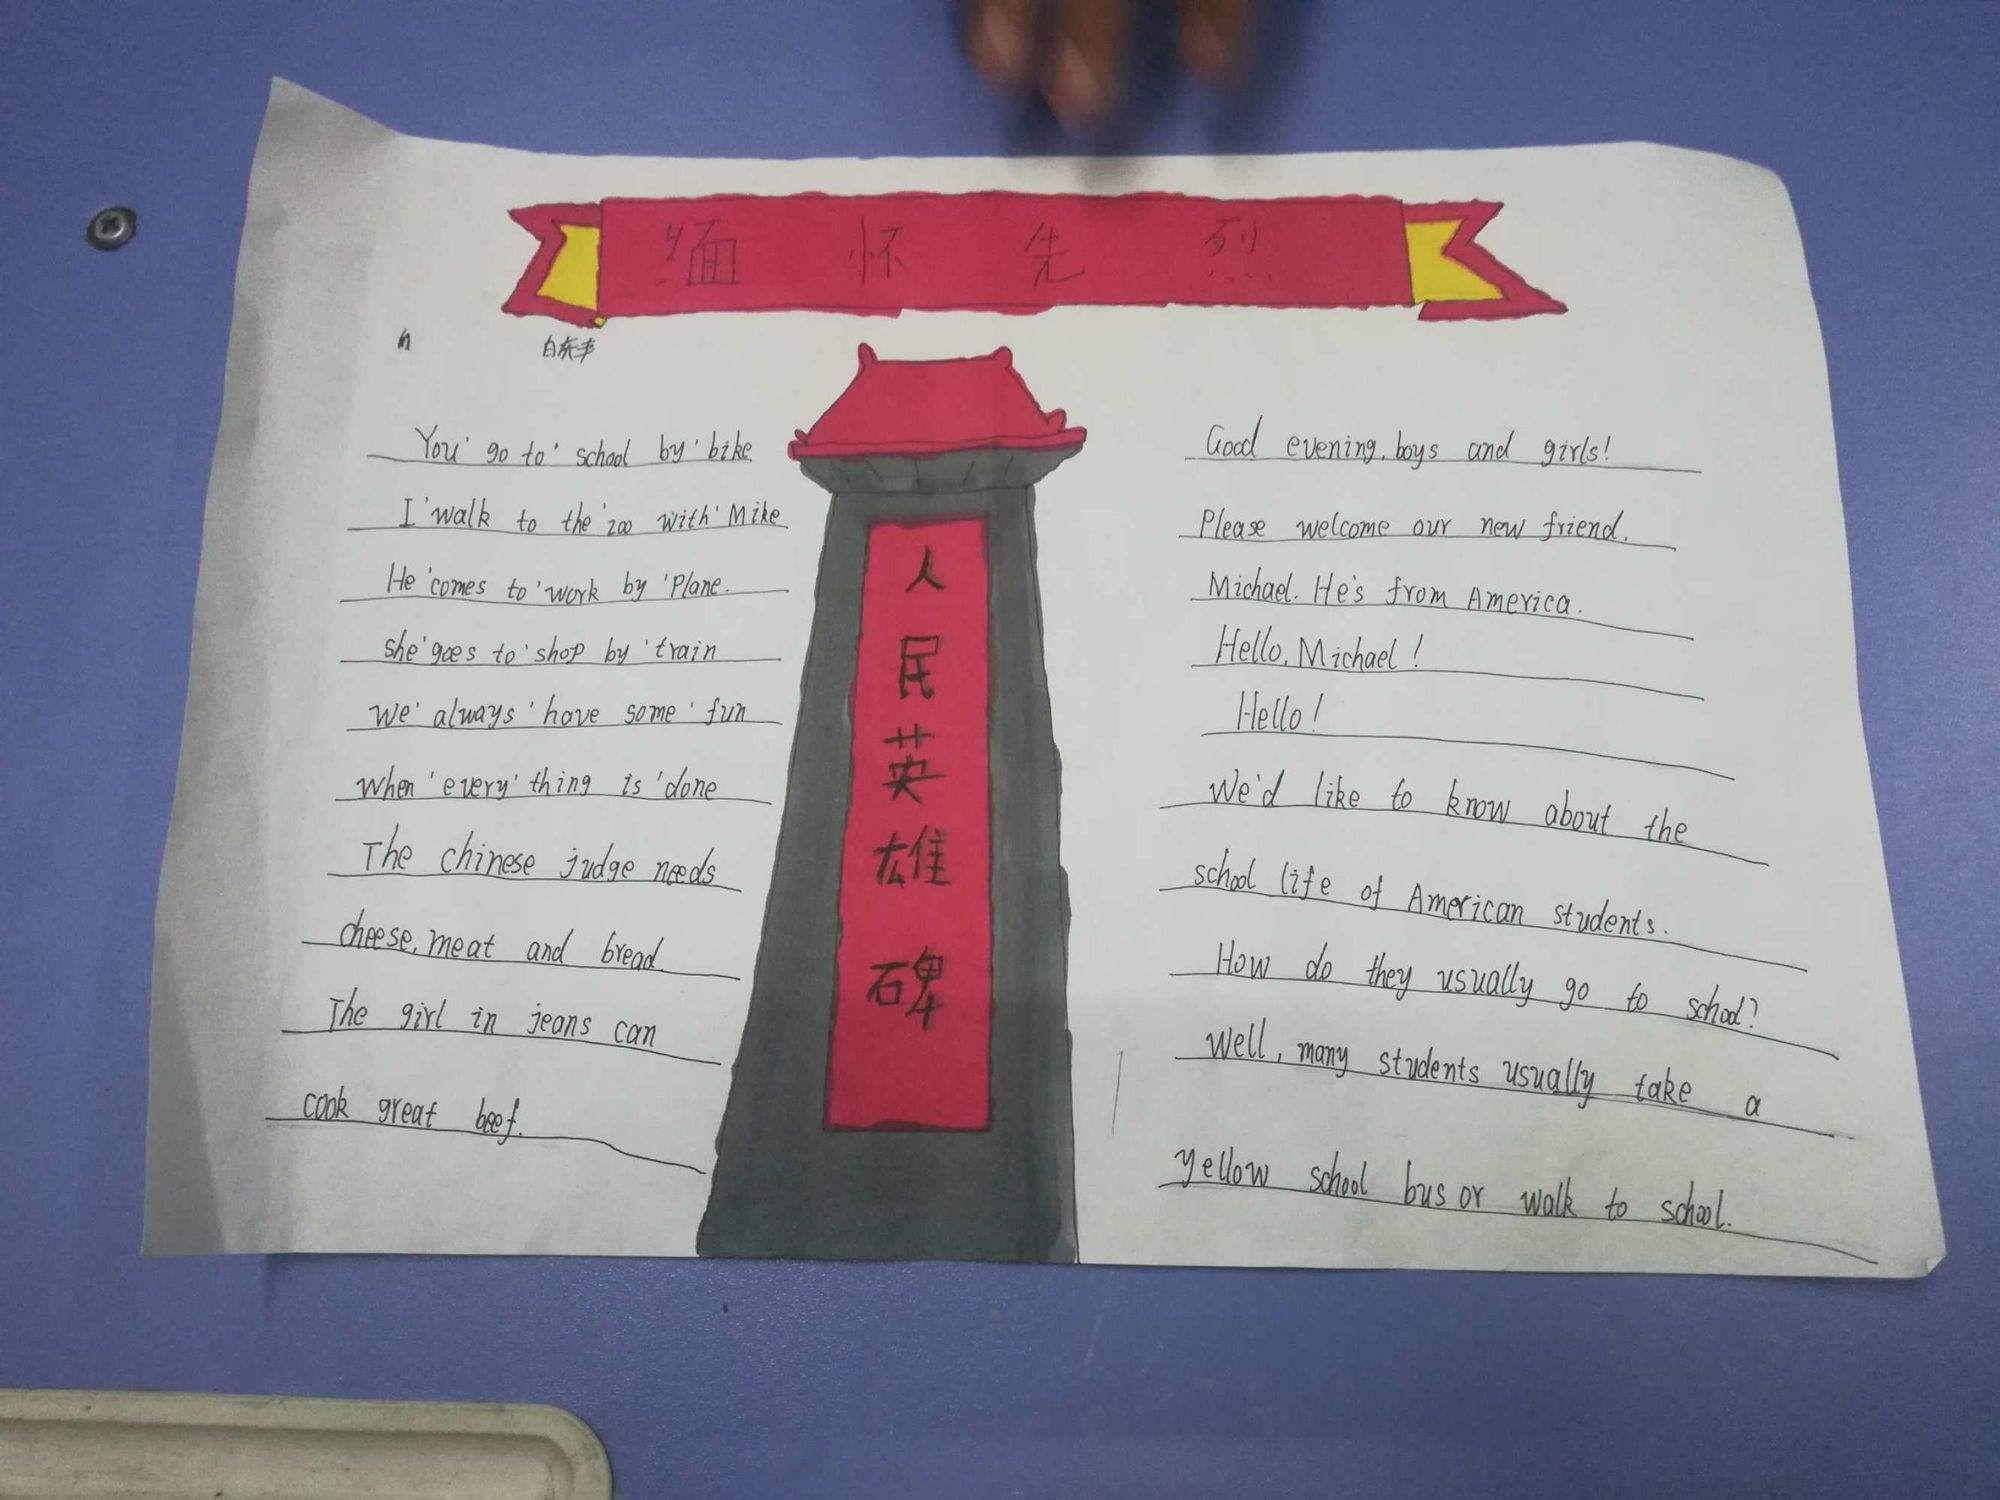 缅怀先烈
白东丰
You go to school by bike.
I walk to the zoo with Mike
He comes to work by Plane.
she goes to shop by train
we always have some fun
when every thing is done
The chinese judge needs
cheese, meat and bread.
The girl in jeans can
cook great beef.
人民英雄碑
Good evening, boys and girls!
Please welcome our new friend.
Michael. He's from America.
Hello, Michael!
Hello!
We'd like to know about the
school life of American students.
How do they usually go to school?
Well, many students usually take a
yellow school bus or walk to school.